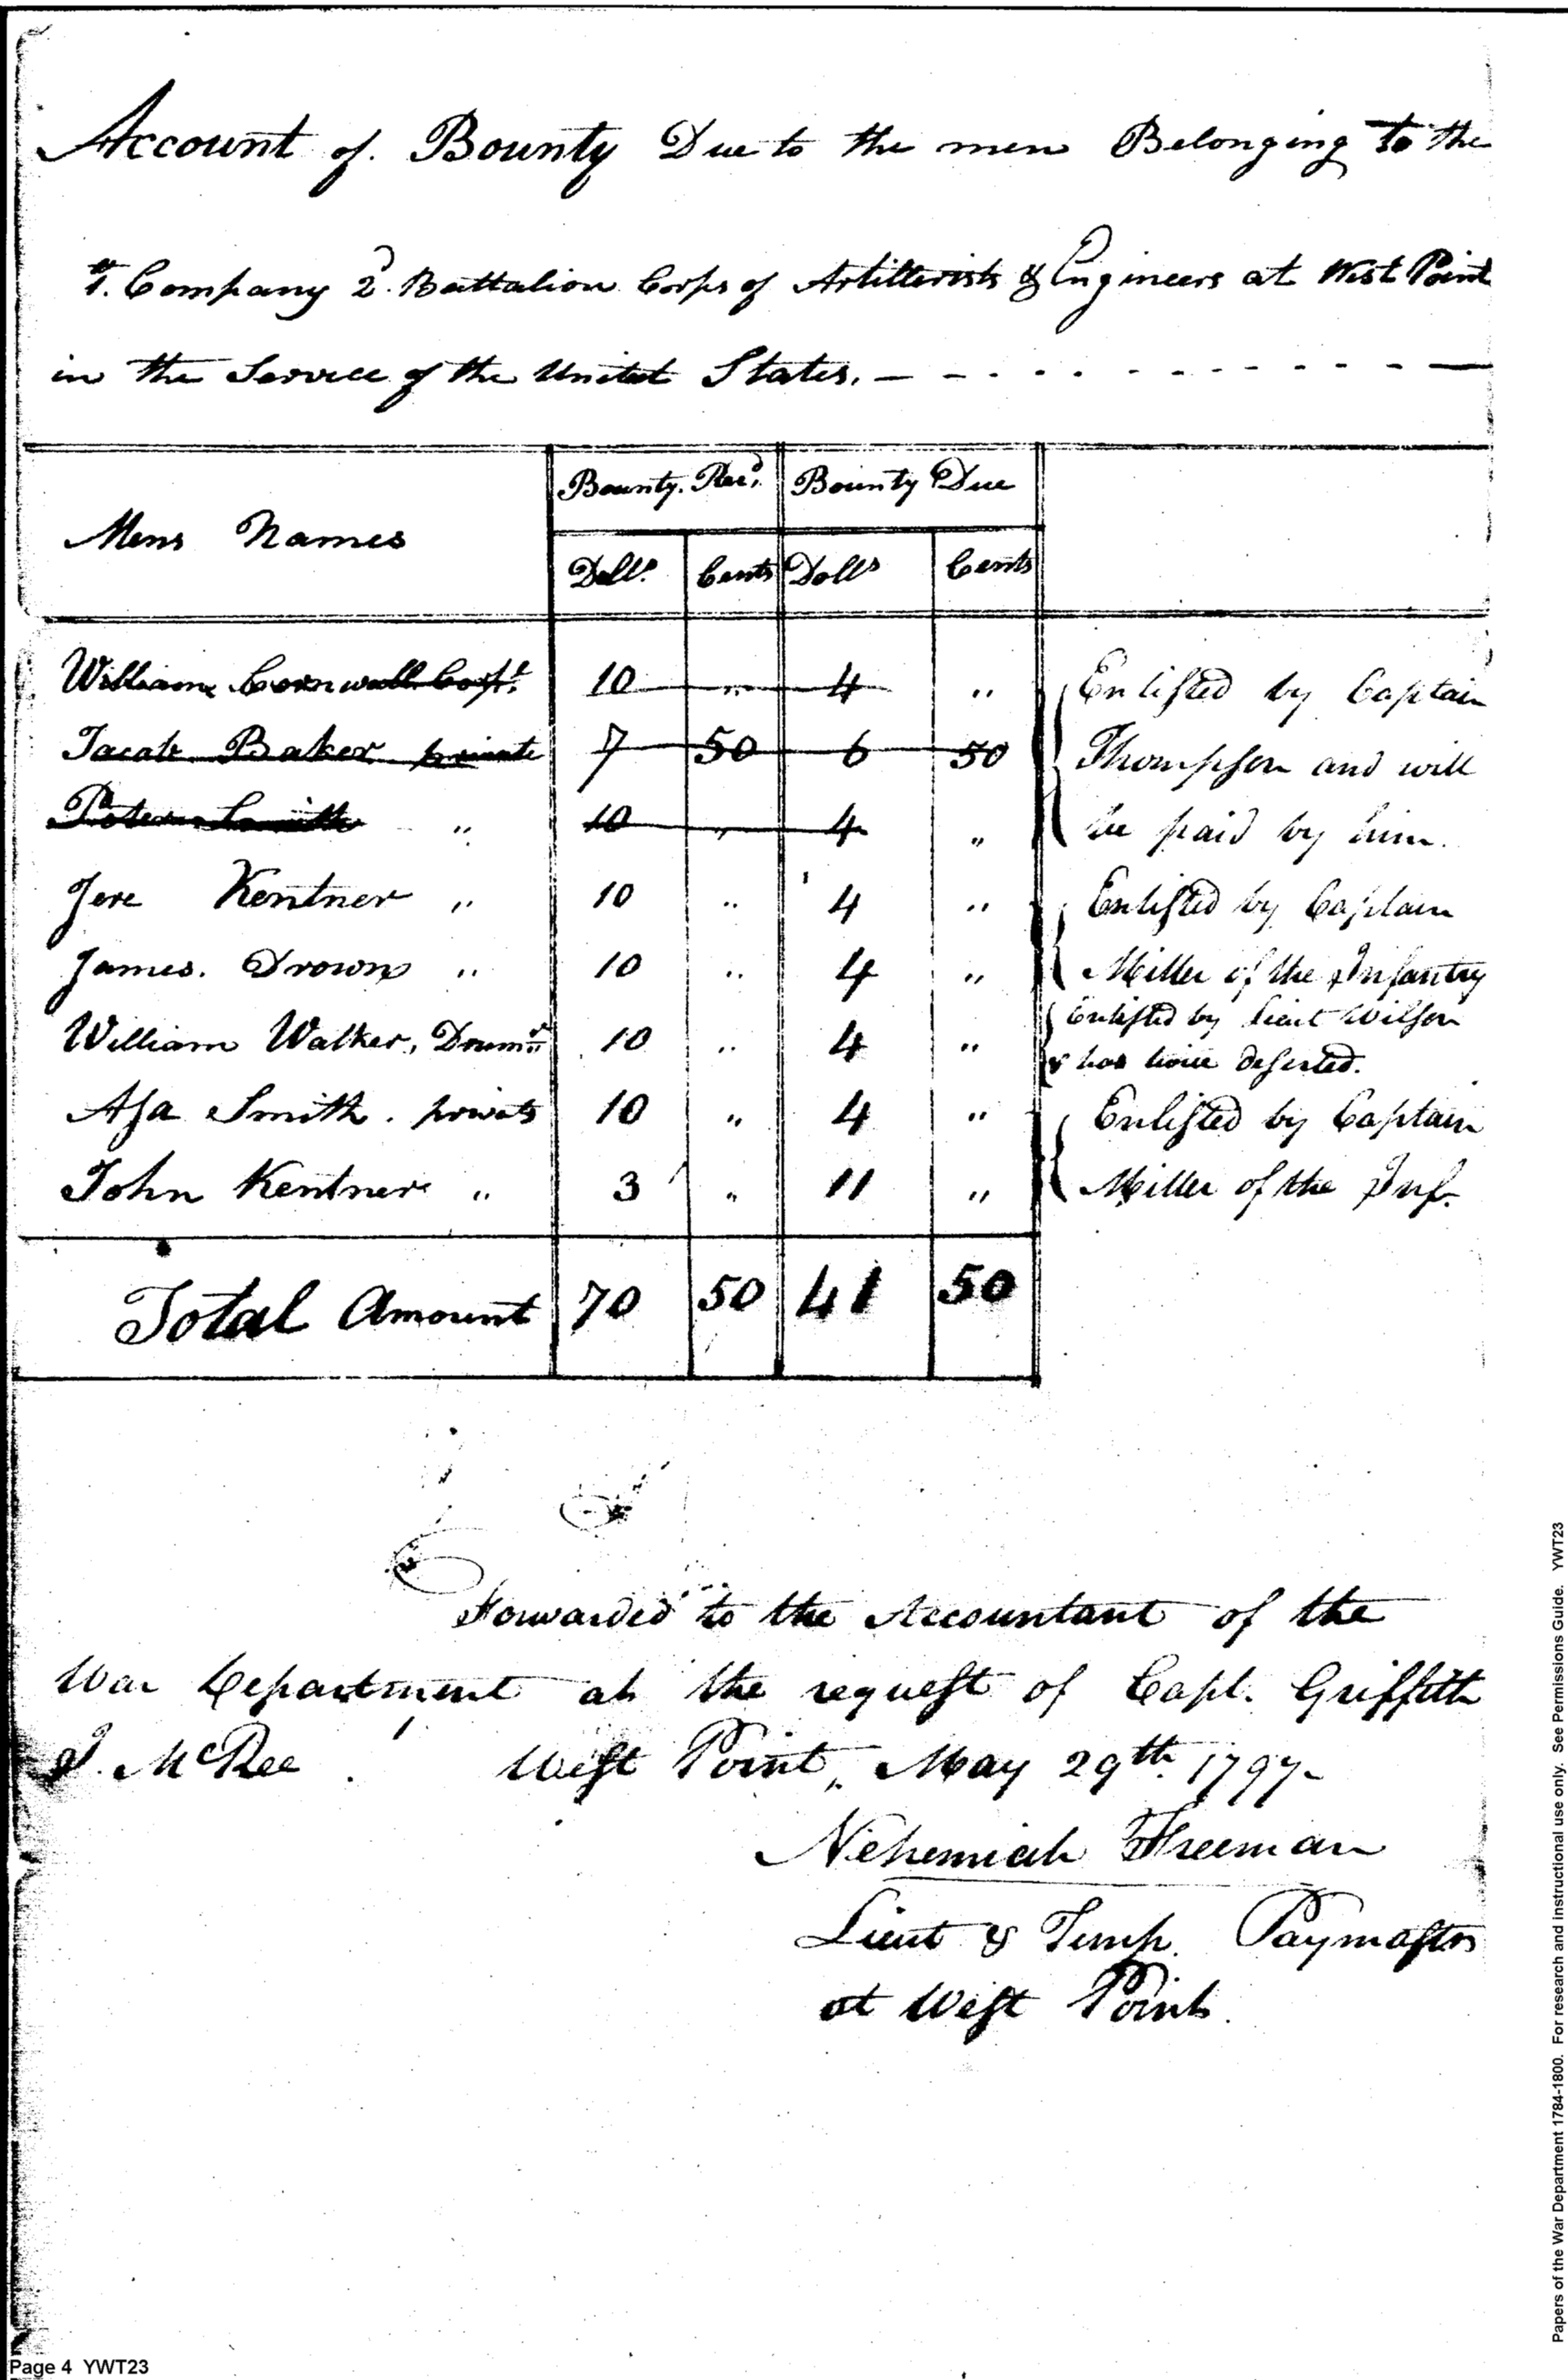 Account of Bounty Due to the men Belonging to the
1st. Company 2d. Battalion Corps of Artillerists & Engineers at West Point
in the Service of the United States.
Mens Names
Bounty. Recd. Bounty Due
Dolls. Cents Dolls Cents
William Cornwall Corpl. 10 „ 4 „ Enlisted by Captain
Jacob Baker private 7 50 6 50 Thompson and will
Peter Smith „ 10 „ 4 „ be paid by him.
Jere Kentner „ 10 „ 4 „ Enlisted by Captain
James. Drown „ 10 „ 4 „ Miller of the Infantry
William Walker, Drumr. 10 „ 4 „ Enlisted by Lieut Wilson
& has twice deserted.
Asa Smith. private 10 „ 4 „ Enlisted by Captain
John Kentner „ 3 „ 11 „ Miller of the Inf.
Total Amount 70 50 41 50
Forwarded to the Accountant of the
War Department at the request of Capt. Griffith
J. McRee. West Point, May 29th. 1797
Nehemiah Freeman
Lieut & Temp. Paymaster
at West Point.
Page 4 YWT23
Papers of the War Department 1784-1800. For research and instructional use only. See Permissions Guide. YWT23